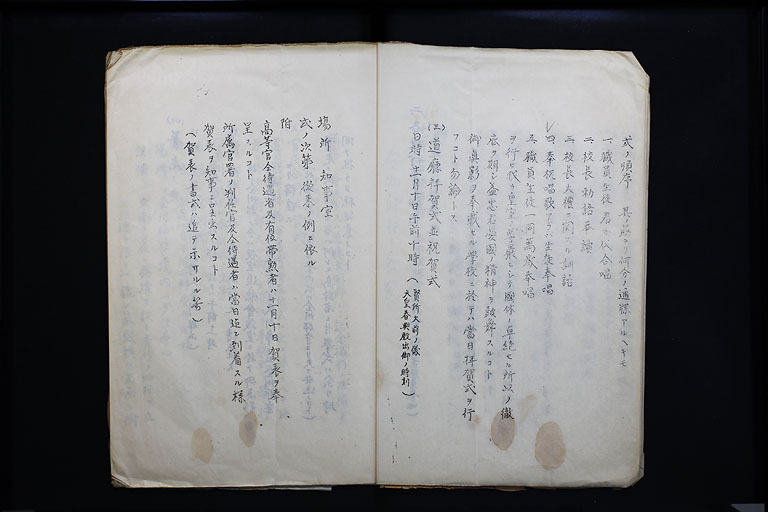 式ノ順序ハ其ノ筋ヨリ何分ノ通牒アルヘキモ
一、職員生徒君ガ代合唱
二、校長勅語奉読
三、校長大礼ニ関スル訓話
四、奉祝唱歌アラバ生徒奉唱
五、職員生徒一同万歳奉唱
ヲ行ヒ我カ皇室ノ尊厳ニシテ國体ノ卓絶セル所以ノ徹
底ヲ期シ益忠君愛國ノ精神ヲ鼓舞スルコト
御真影ヲ奉戴セル学校ニ於テハ當日拝賀式ヲ行
フコト勿論トス
(三)道廳拝賀式並祝賀式
日時 十一月十日午前十時(賢所大前ノ儀
天皇春興殿出御ノ時刻)
場所 知事室
式ノ次第ハ従来ノ例ニ依ル
附
高等官仝待遇者及有位帯勲者ハ十一月十日賀表ヲ奉
呈スルコト
所属官署ノ判任官及仝待遇者ハ當日迄ニ到着スル様
賀表ヲ知事ニ呈出スルコト
(賀表ノ書式ハ追テ示サルル筈)